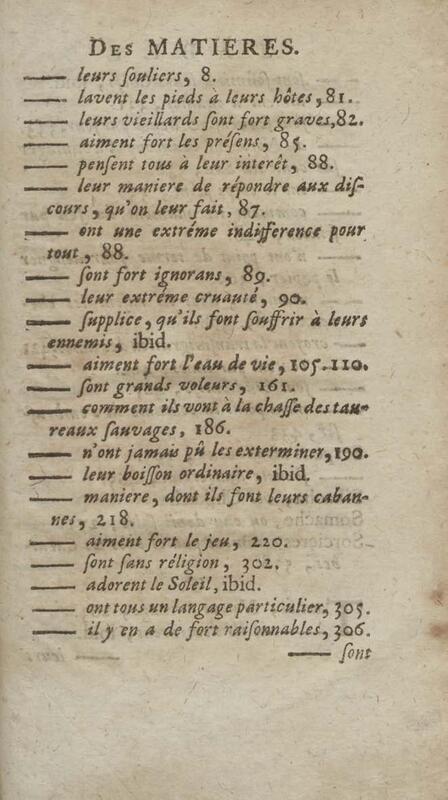 DES MATIERES.
—— leurs ſouliers, 8.
—— lavent les pieds à leurs hôtes, 81.
—— leurs vieillards ſont fort graves, 82.
—— aiment fort les préſens, 85.
—— penſent tous à leur interêt, 88.
—— leur maniere de répondre aux diſ-
cours, qu'on leur fait, 87.
—— ont une extréme indifference pour
tout, 88.
—— ſont fort ignorans, 89.
—— leur extréme cruauté, 90.
—— ſupplice, qu'ils font ſouffrir à leurs
ennemis, ibid.
—— aiment fort l'eau de vie, 105. 110.
—— ſont grands voleurs, 161.
—— comment ils vont à la chaſſe des tau-
reaux ſauvages, 186.
—— n'ont jamais pû les exterminer, 190.
—— leur boiſſon ordinaire, ibid.
—— maniere, dont ils font leurs caban-
nes, 218.
—— aiment fort le jeu, 220.
—— ſont ſans réligion, 302.
—— adorent le Soleil, ibid.
—— ont tous un langage particulier, 305.
—— il y en a de fort raiſonnables, 306.
—— ſont